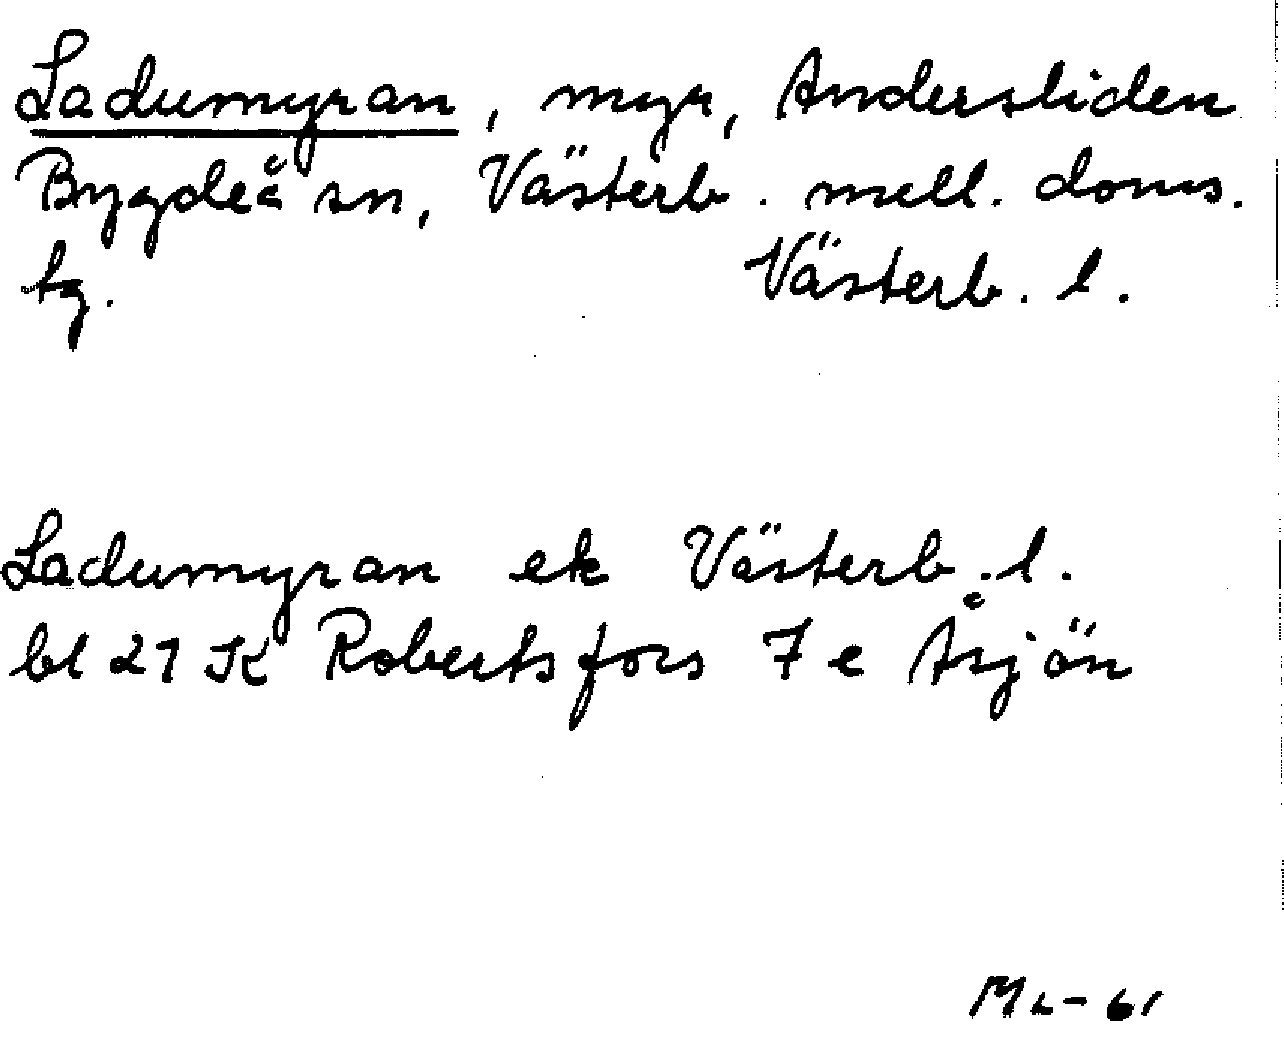 Ladumyran, myr, Andersliden
Bygdeå sn, Västerb. mell. doms.
tg. Västerb. l.
Ladumyran ek Västerb. l.
bl 21 K Robertsfors 7 e Åsjön
ML-61